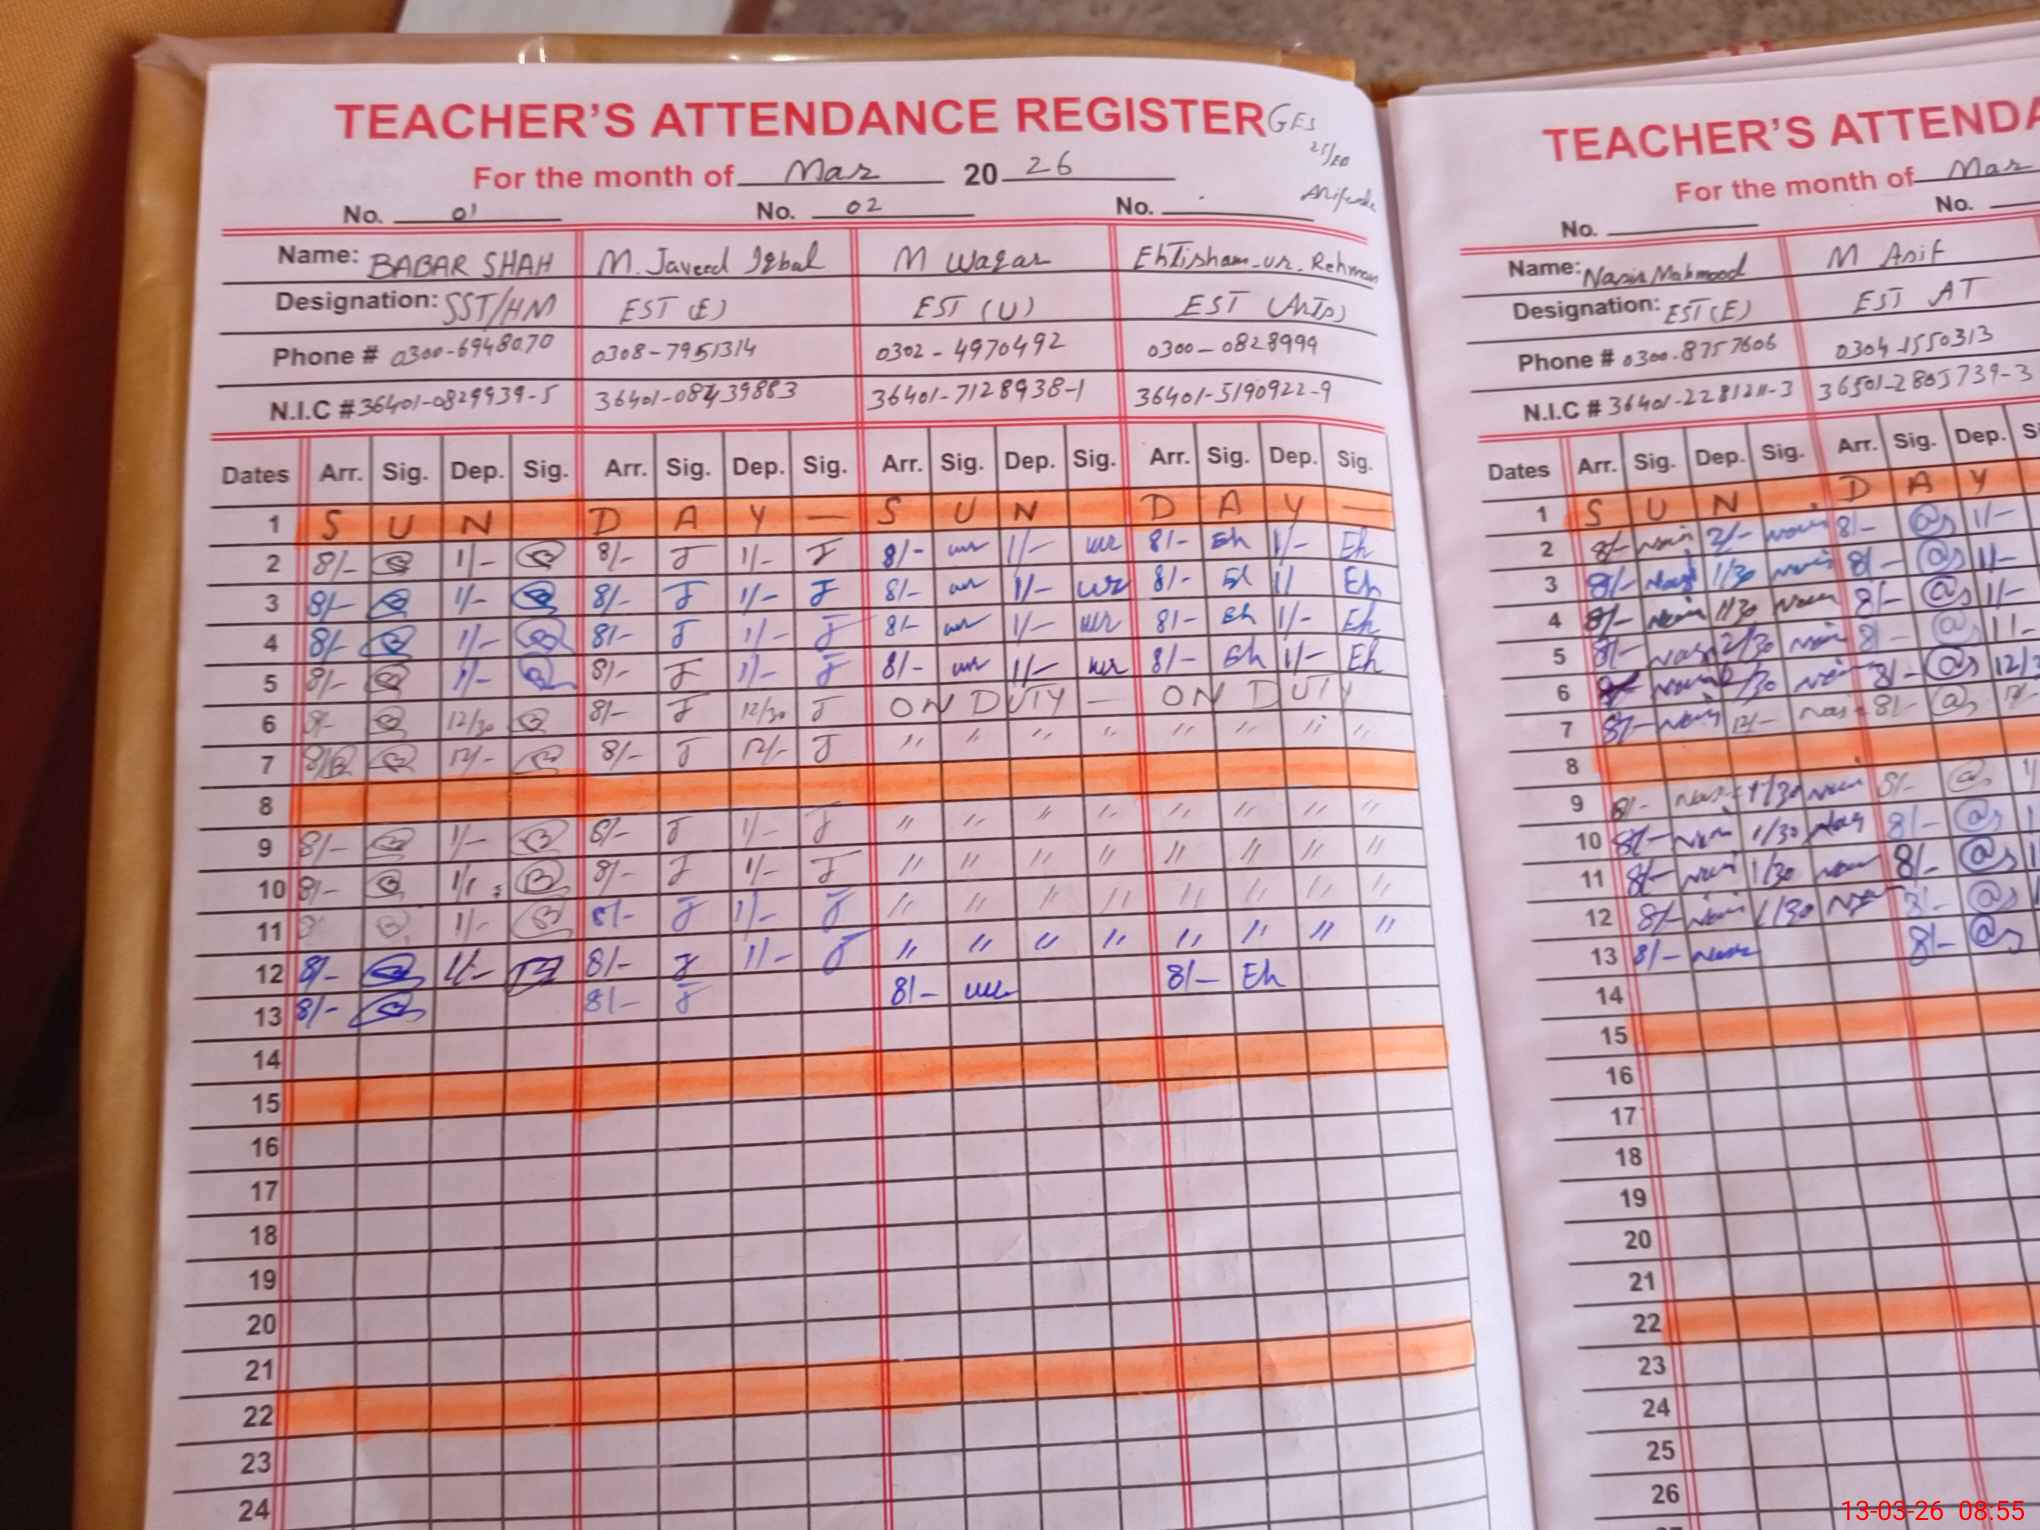 TEACHER'S ATTENDANCE REGISTER GES
25/EB
For the month of Mar 20 26
No. 01 No. 02 No.
Name: BABAR SHAH M. Javeed Iqbal M Waqar Ehtisham-ur-Rehman
Designation: SST/HM EST (E) EST (U) EST (Arts)
Phone # 0300-6948070 0308-7951314 0302-4970492 0300-0828999
N.I.C # 36401-0829939-5 36401-7128938-1 36401-5190922-9
Dates Arr. Sig. Dep. Sig. Arr. Sig. Dep. Sig. Arr. Sig. Dep. Sig. Arr. Sig. Dep. Sig.
1 S U N D A Y — S U N D A Y —
2 8/- 1/- 8/- J 1/- J 8/- wr 1/- wr 8/- Eh 1/- Eh
3 8/- 1/- 8/- J 1/- J 8/- wr 1/- wr 8/- Eh 1/ Eh
4 8/- 1/- 8/- J 1/- J 8/- wr 1/- wr 8/- Eh 1/- Eh
5 8/- 1/- 8/- J 1/- J 8/- wr 1/- wr 8/- Eh 1/- Eh
6 8/- 12/30 8/- J 12/30 J ON DUTY — ON DUTY
7 8/- 12/- 8/- J 12/- J " " " " " " " "
8
9 8/- 1/- 8/- J 1/- J " " " " " " " "
10 8/- 8/- J 1/- J " " " " " " " "
11 8 1/- 8/- J 1/- J " " " " " " " "
12 8/- 1/- 8/- J 1/- J " " " " " " " "
13 8/- 8/- J 8/- wr 8/- Eh
14
15
16
17
18
19
20
21
22
23
24
TEACHER'S ATTENDA
For the month of Mar
No. No.
Name: Nasir Mahmood M Asif
Designation: EST (E) EST AT
Phone # 0300-8757606 0304-1550313
N.I.C # 36401-2281211-3 36501-2805739-3
Dates Arr. Sig. Dep. Sig. Arr. Sig. Dep. S
1 S U N D A Y
2 8/- Nasir 2/- Nasir 8/- @s 1/-
3 8/- Nasir 1/30 Nasir 8/- @s 1/-
4 8/- Nasir 1/30 Nasir 8/- @s 1/-
5 8/- Nasir 2/30 Nasir 8/- @s 1/-
6 Nasir Nasir 8/- @s 12/3
7 8/- Nasir 12/- Nasir 8/- @s 12/-
8
9 8/- Nasir 1/30 Nasir 8/- @s 1
10 8/- Nasir 1/30 Nasir 8/- @s 1
11 8/- Nasir 1/30 Nasir 8/- @s 1
12 8/- Nasir 1/30 Nasir 8/- @s 1
13 8/- Nasir 8/- @s
14
15
16
17
18
19
20
21
22
23
24
25
26
13-03-26 08:55